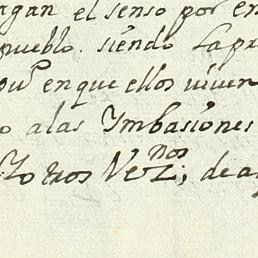 agan el senso por en
pueblo. siendo la pa
en que ellos viven
o a las Ymbasiones
otros Vez.nos; de a